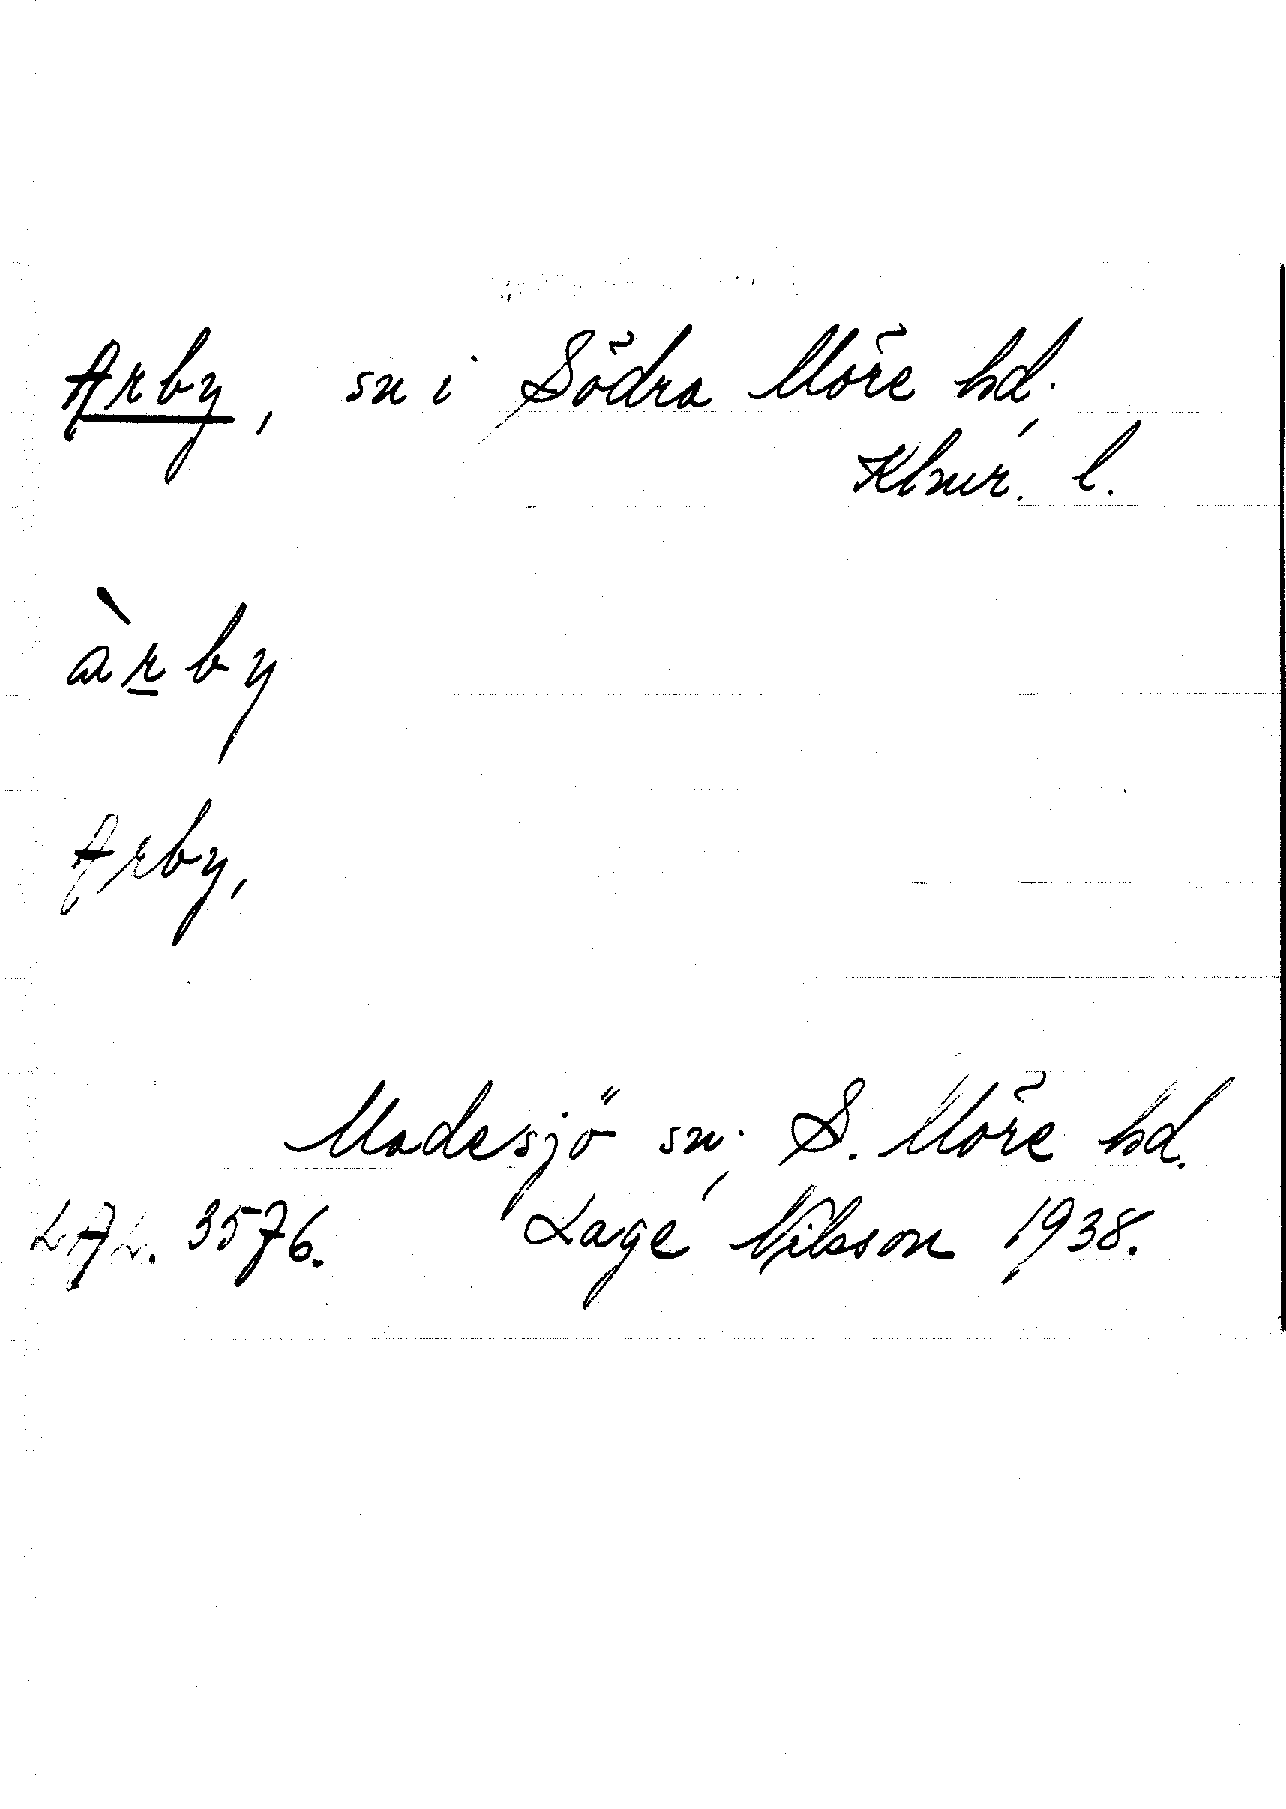 Arby, sn i Södra Möre hd,
Klmr. l.
àrby
Arby,
Madesjö sn, S. Möre hd.
LAL. 3576. Lage Nilsson 1938.